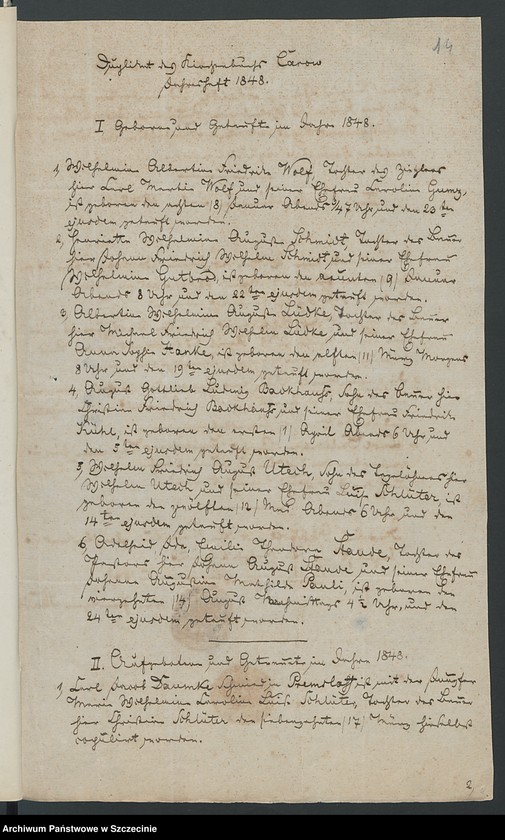 14
Duplikat des Kirchenbuchs Carow
Jahrschaft 1848.
I Geborene und Getaufte im Jahre 1848.
1, Wilhelmine Albertine Friedrike Wolf, Tochter des Zieglers
hier Carl Martin Wolf und seiner Ehefrau Caroline
ist geboren den achten /8/ Januar Abends Uhr und den 23 ten
ejusdem getauft worden.
2, Henriette Wilhelmine Auguste Schmidt, Tochter des Bauer
hier Johann Friedrich Wilhelm Schmidt und seiner Ehefrau
Wilhelmine ist geboren den neunten /9/ Januar
Abends 8 Uhr und den 22 ten ejusdem getauft worden.
3, Albertine Wilhelmine Auguste Lüdke, Tochter des Bauer
hier Michael Friedrich Wilhelm Lüdke und seiner Ehefrau
Anna Sophie ist geboren den elften /11/ März Morgens
8 Uhr und den 19 ten ejusdem getauft worden.
4, August Gottlieb Ludwig Backhaus, Sohn des Bauer hier
Christian Friedrich Backhaus, und seiner Ehefrau Friedrike
ist geboren den ersten /1/ April Abends 6 Uhr, und
den 5 ten ejusdem getauft worden.
5, Wilhelm Friedrich August Utech, Sohn des Tagelöhners hier
Wilhelm Utech und seiner Ehefrau Luise Schlüter, ist
geboren den zwölften /12/ Mai Abends 6 Uhr, und den
14 ten ejusdem getauft worden.
6, Adelheid Ida, Emilie Theodore Tochter des
Pastors hier Johann August und seiner Ehefrau
Johanne Augustine Mathilde Pauli, ist geboren den
vierzehnten /14/ August Nachmittags 4 ½ Uhr, und den
24 ten ejusdem getauft worden.
II. Aufgebotene und Getraute im Jahre 1848.
1, Carl Jacob Daumke Schmied in Premslaff ist mit der Jungfer
Marie Wilhelmine Caroline Luise Schlüter, Tochter des Bauer
hier Christian Schlüter den siebenzehnten /17/ März hieselbst
copulirt worden.
2
Archiwum Państwowe w Szczecinie